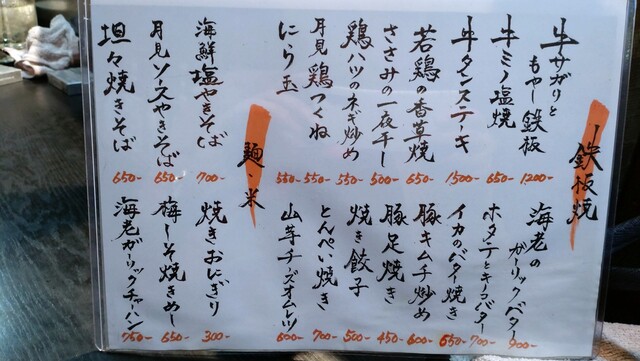 鉄板焼
牛サガリと
もやし鉄板
1200-
牛ミノ塩焼
650-
牛タンステーキ
1500-
若鶏の香草焼
650-
ささみの一夜干し
500-
鶏ハツのネギ炒め
550-
月見鶏つくね
550-
にら玉
550-
海老の
ガーリックバター
900-
ホタテとキノコバター
700-
イカのバター焼き
650-
豚キムチ炒め
600-
豚足焼き
450-
焼き餃子
500-
とんぺい焼き
700-
山芋チーズオムレツ
600-
麺・米
海鮮塩やきそば
700-
月見ソースやきそば
650-
坦々焼きそば
650-
焼きおにぎり
300-
梅しそ焼きめし
650-
海老ガーリックチャーハン
750-